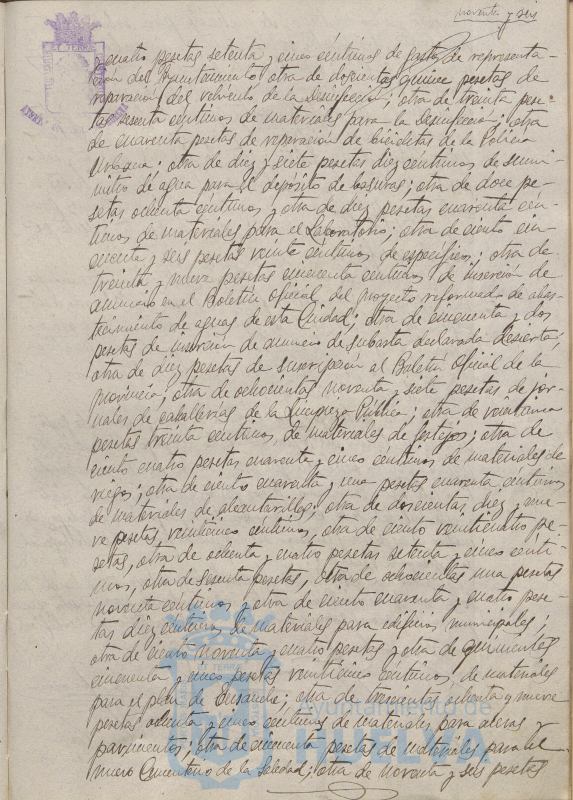 noventa y seis
y cuatro pesetas setenta y cinco céntimos de gastos de representa-
ción del Ayuntamiento; otra de doscientas quince pesetas de
reparación del vehículo de la Desinfección; otra de treinta pese-
tas sesenta céntimos de materiales para la Desinfección; otra
de cuarenta pesetas de reparación de bicicletas de la Policía
Urbana; otra de diez y siete pesetas diez céntimos de sumi-
nistro de agua para el depósito de basuras; otra de doce pe-
setas ochenta céntimos y otra de diez pesetas cuarenta cén-
timos de materiales para el Laboratorio; otra de ciento cin-
cuenta y seis pesetas veinte céntimos de específicos; otra de
treinta y nueve pesetas cincuenta céntimos de inserción de
anuncio en el Boletín Oficial del proyecto reformado de abas-
tecimiento de aguas de esta Ciudad; otra de cincuenta y dos
pesetas de inserción de anuncio de subasta declarada desierta;
otra de diez pesetas de suscripción al Boletín Oficial de la
provincia; otra de ochocientas noventa y siete pesetas de jor-
nales de caballerías de la Limpieza Pública; otra de veinticinco
pesetas treinta céntimos de materiales de festejos; otra de
ciento cuatro pesetas cuarenta y cinco céntimos de materiales de
riegos; otra de ciento cuarenta y una pesetas cuarenta céntimos
de materiales de alcantarillas; otra de doscientas diez y nue-
ve pesetas, veinticinco céntimos, otra de ciento veinticuatro pe-
setas, otra de ochenta y cuatro pesetas setenta y cinco cénti-
mos, otra de sesenta pesetas, otra de ochocientas una pesetas
noventa céntimos y otra de ciento cuarenta y cuatro pese-
tas diez céntimos de materiales para edificios municipales;
otra de ciento noventa y cuatro pesetas y otra de quinientas
cincuenta y cinco pesetas veinticinco céntimos, de materiales
para el plan de Ensanche; otra de trescientas ochenta y nueve
pesetas ochenta y cinco céntimos de materiales para aceras y
pavimentos; otra de cincuenta pesetas de materiales para el
nuevo Cementerio de la Soledad; otra de noventa y seis pesetas
Ayuntamiento de
HUELVA